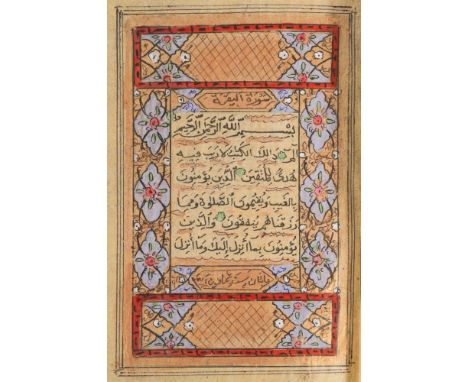 سورة البقرة
بسم الله الرحمن الرحيم
الم ذلك الكتب لا ريب فيه
هدى للمتقين الذين يؤمنون
بالغيب ويقيمون الصلوة ومما
رزقناهم ينفقون والذين
يؤمنون بما أنزل إليك وما أنزل